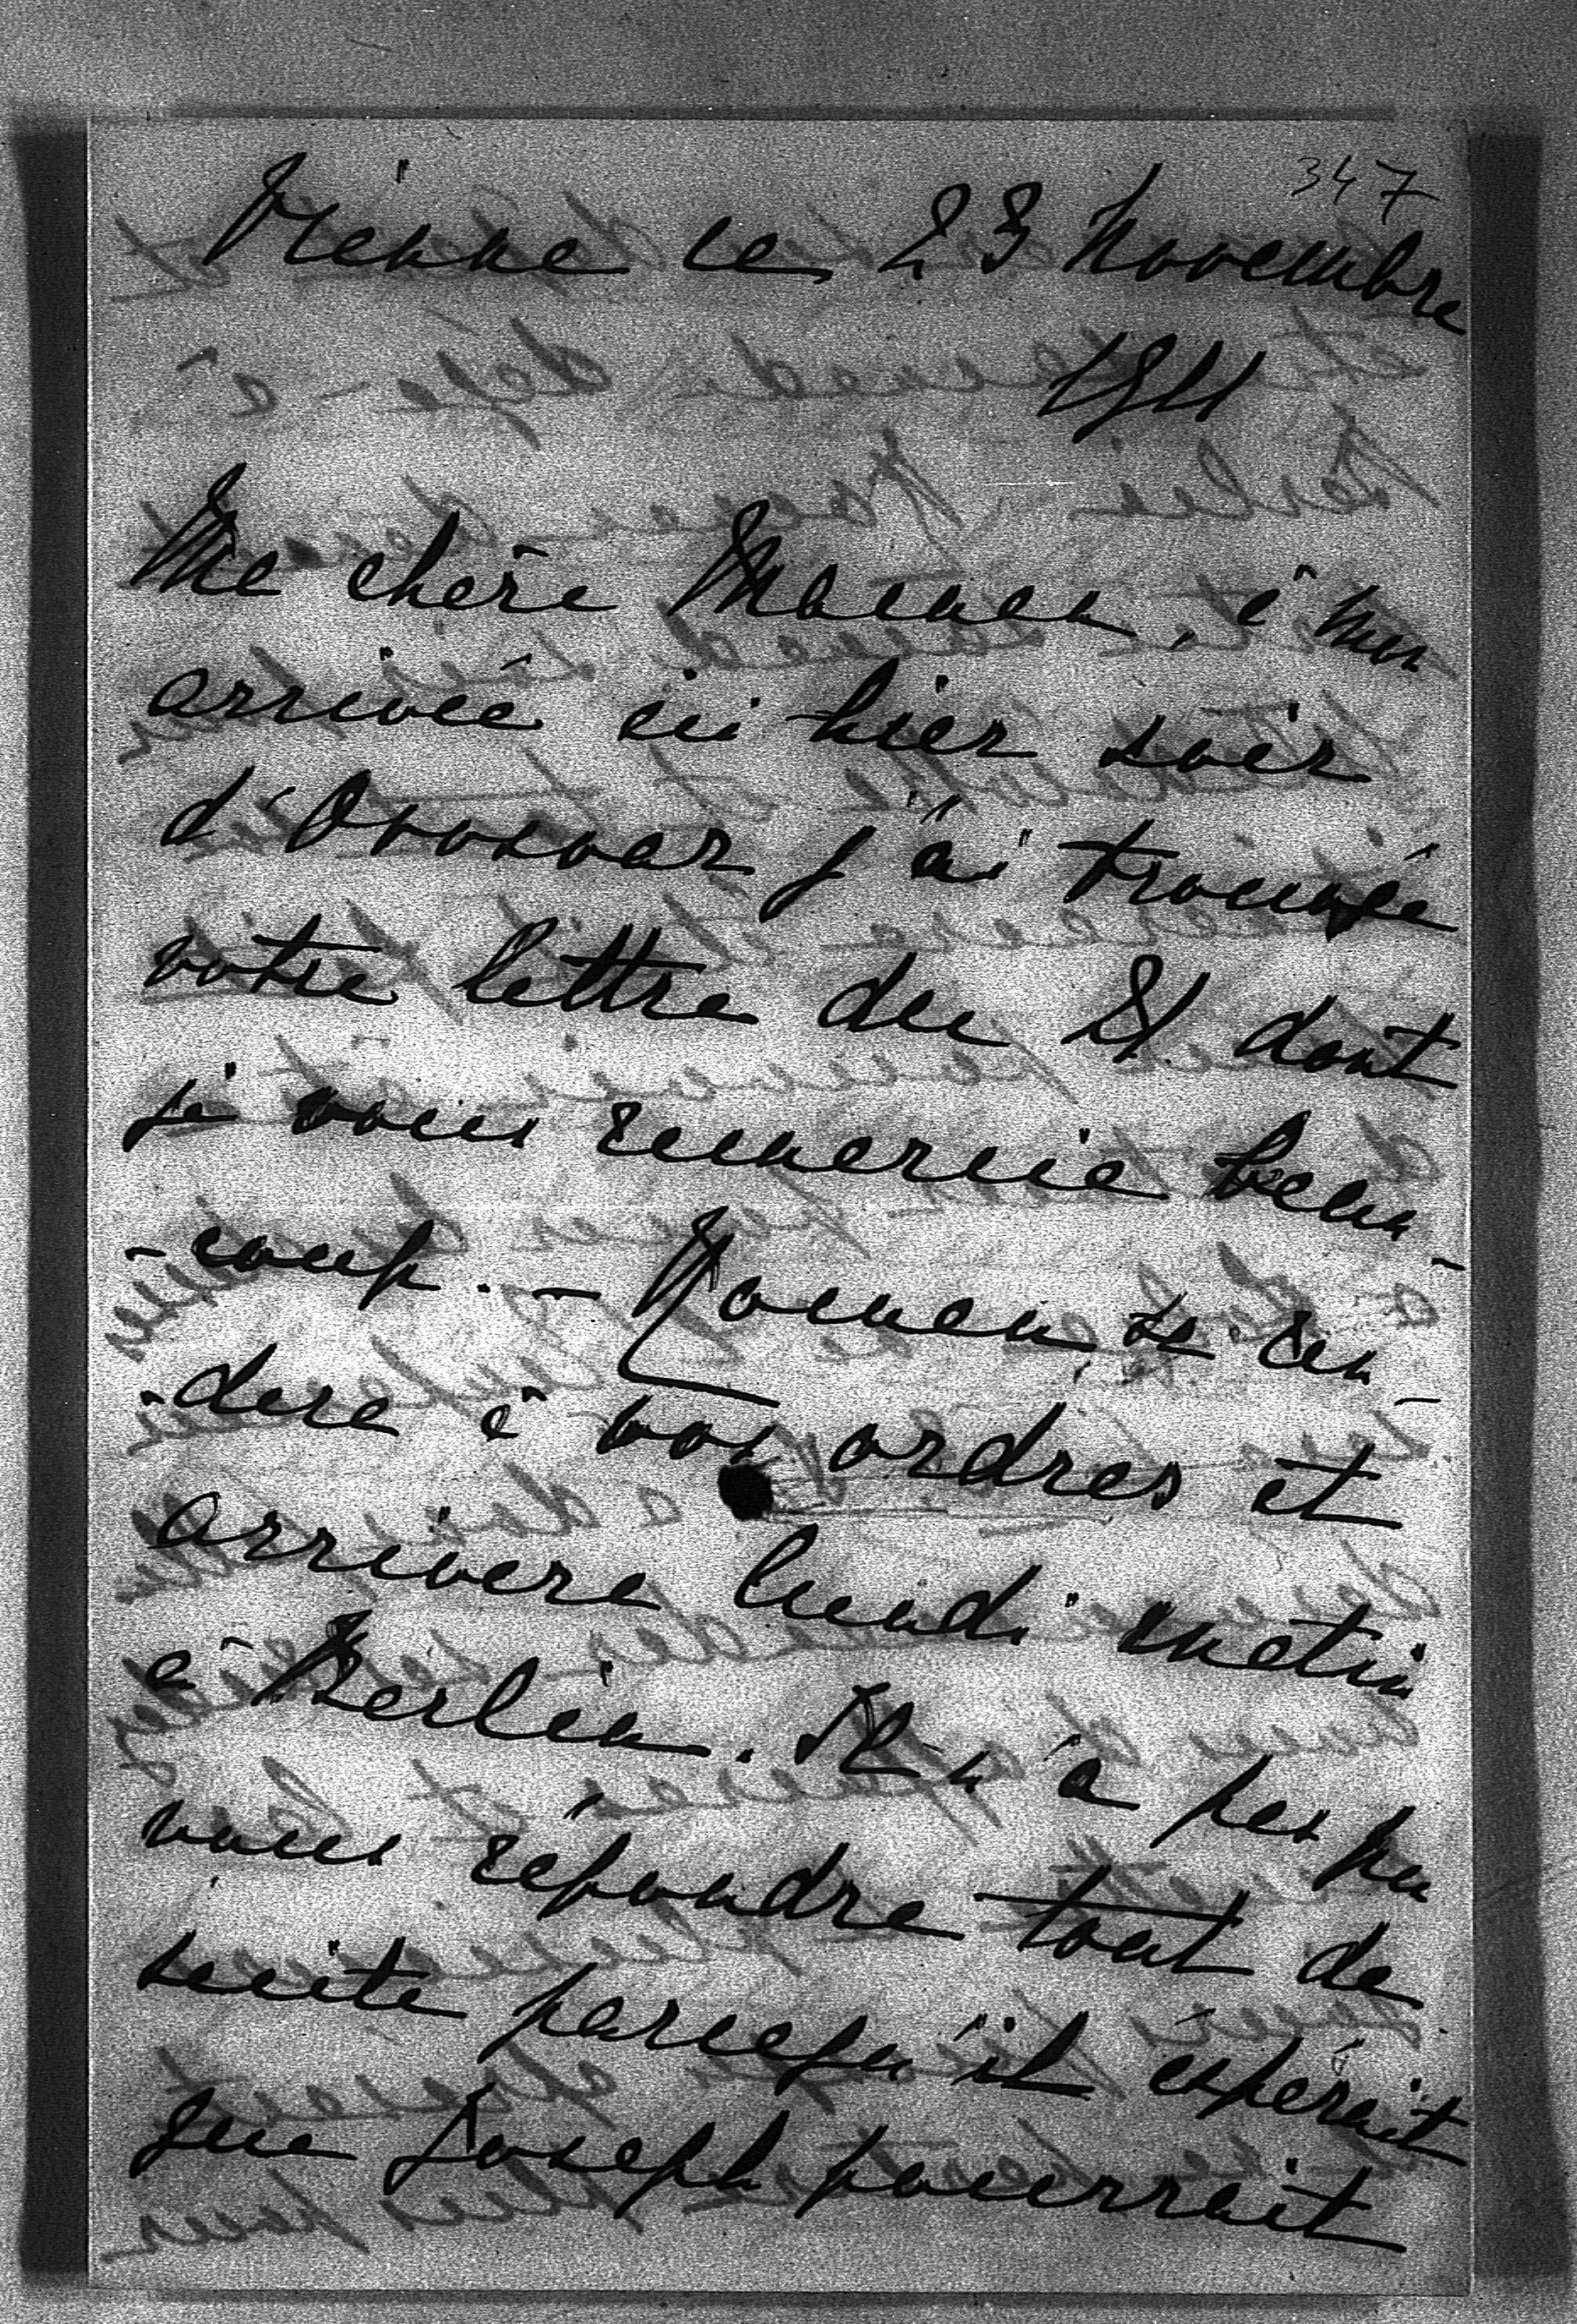 347
Vienne ce 23 Novembre
1911
Ma chère Maman, à mon
arrivée ici hier soir
d'Orosvar j'ai trouvé
votre lettre du 21 dont
je vous remercie beau-
-coup. - Roman se ren-
-dera à vos ordres et
arrivera lundi matin
à Berlin. Il n'a pas pu
vous répondre tout de
suite parcequ'il espérait
que Joseph pourrait